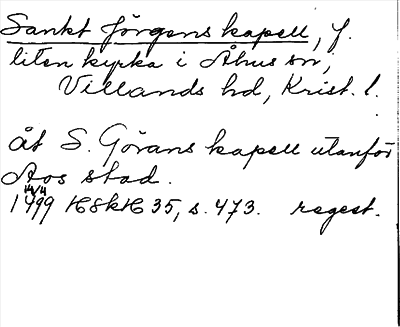 Sankt Jörgens kapell, f.
liten kyrka i Åhus sn,
Villands hd, Krist. l.
åt S. Görans kapell utanför
Aos stad.
14/4
1499 HSH 35, s. 473. regest.